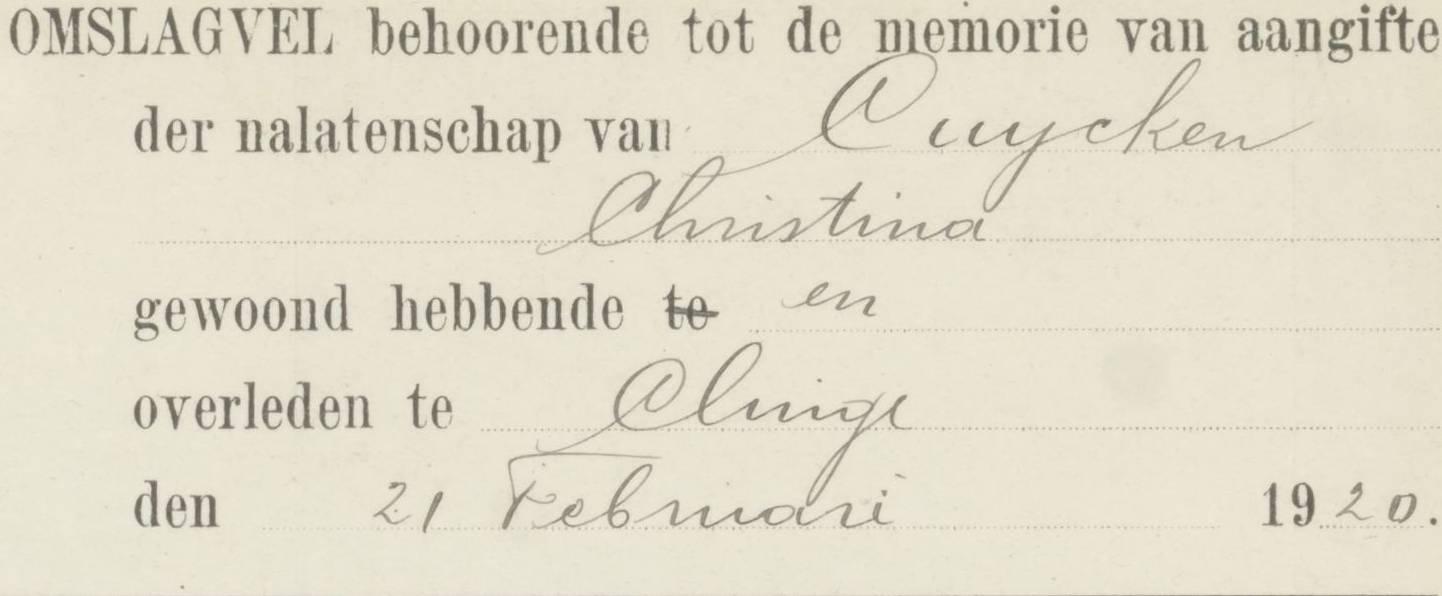 OMSLAGVEL behoorende tot de memorie van aangifte
der nalatenschap van Cuycken
Christina
gewoond hebbende te en
overleden te Clinge
den 21 Februari 1920.